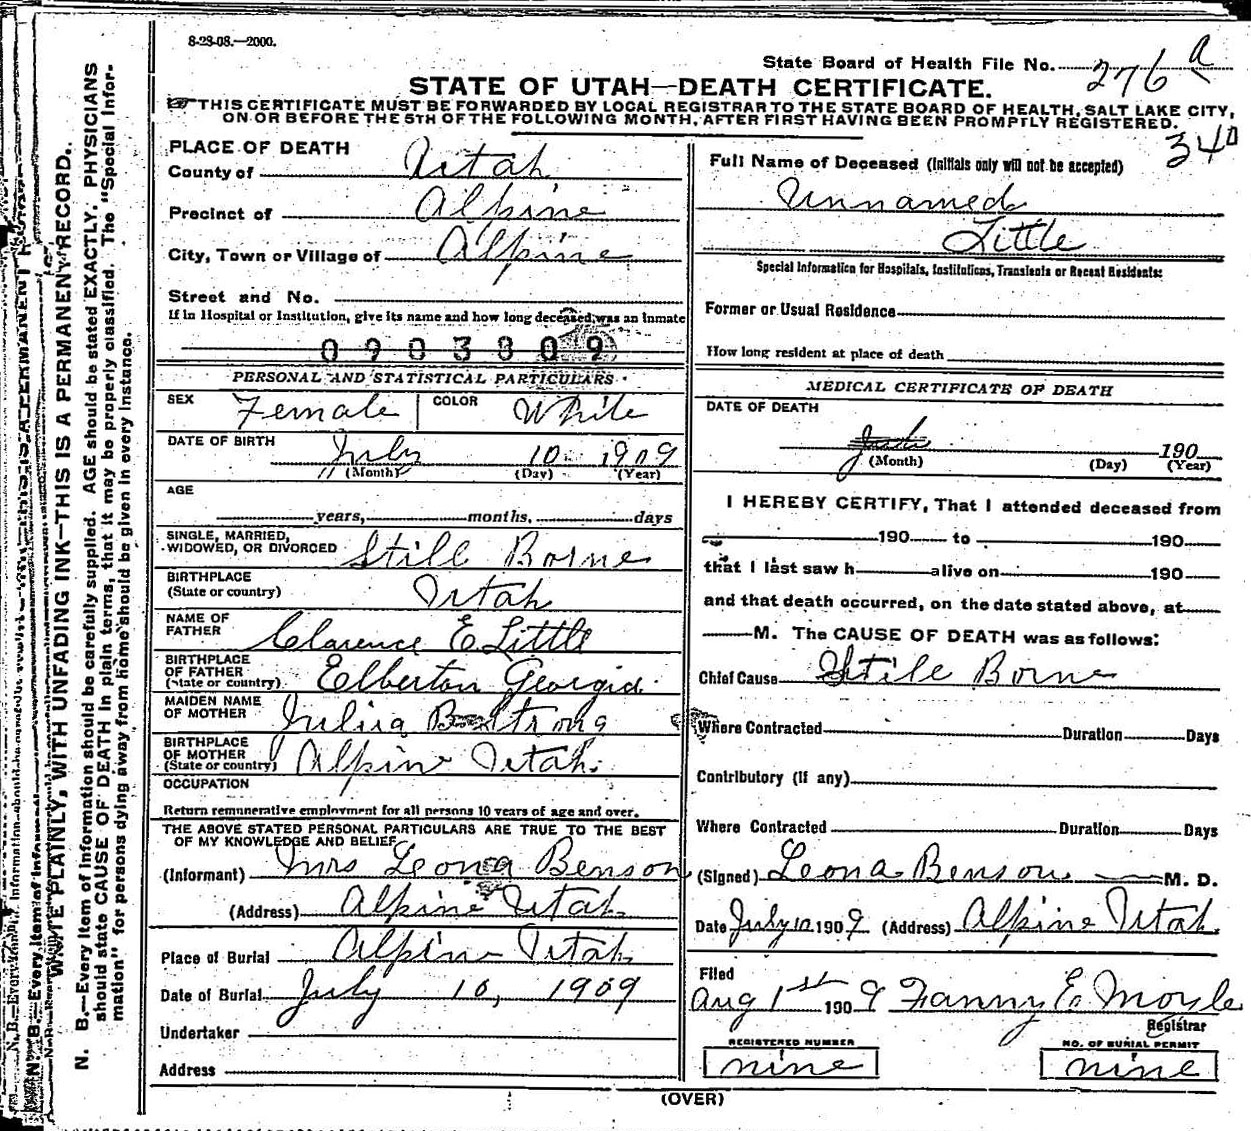 8-23-08.—2000.
State Board of Health File No. 276 a
STATE OF UTAH—DEATH CERTIFICATE.
THIS CERTIFICATE MUST BE FORWARDED BY LOCAL REGISTRAR TO THE STATE BOARD OF HEALTH, SALT LAKE CITY,
ON OR BEFORE THE 5TH OF THE FOLLOWING MONTH, AFTER FIRST HAVING BEEN PROMPTLY REGISTERED.
340
PLACE OF DEATH
County of Utah
Precinct of Alpine
City, Town or Village of Alpine
Street and No.
If in Hospital or Institution, give its name and how long deceased was an inmate
0903809
PERSONAL AND STATISTICAL PARTICULARS
SEX Female COLOR White
DATE OF BIRTH July 10 1909
(Month) (Day) (Year)
AGE
years, months, days
SINGLE, MARRIED,
WIDOWED, OR DIVORCED Still Borne
BIRTHPLACE
(State or country) Utah
NAME OF
FATHER Clarence E Little
BIRTHPLACE
OF FATHER
(State or country) Elberton Georgia
MAIDEN NAME
OF MOTHER Julia B Strong
BIRTHPLACE
OF MOTHER
(State or country) Alpine Utah.
OCCUPATION
Return remunerative employment for all persons 10 years of age and over.
THE ABOVE STATED PERSONAL PARTICULARS ARE TRUE TO THE BEST
OF MY KNOWLEDGE AND BELIEF
(Informant) Mrs Leona Benson
(Address) Alpine Utah
Place of Burial Alpine Utah
Date of Burial July 10, 1909
Undertaker
Address
Full Name of Deceased (Initials only will not be accepted)
Unnamed
Little
Special Information for Hospitals, Institutions, Transients or Recent Residents:
Former or Usual Residence
How long resident at place of death
MEDICAL CERTIFICATE OF DEATH
DATE OF DEATH
190
(Month) (Day) (Year)
I HEREBY CERTIFY, That I attended deceased from
190 to 190
that I last saw h alive on 190
and that death occurred, on the date stated above, at
M. The CAUSE OF DEATH was as follows:
Chief Cause Stile Borne
Where Contracted Duration Days
Contributory (if any)
Where Contracted Duration Days
(Signed) Leona Benson M. D.
Date July 10 1909 (Address) Alpine Utah
Filed
Aug 1st 1909 Fanny E. Moyle
Registrar
REGISTERED NUMBER
nine
NO. OF BURIAL PERMIT
nine
(OVER)
WRITE PLAINLY, WITH UNFADING INK—THIS IS A PERMANENT RECORD.
N. B.—Every item of information should be carefully supplied. AGE should be stated EXACTLY. PHYSICIANS
should state CAUSE OF DEATH in plain terms, that it may be properly classified. The "Special Infor-
mation" for persons dying away from home should be given in every instance.